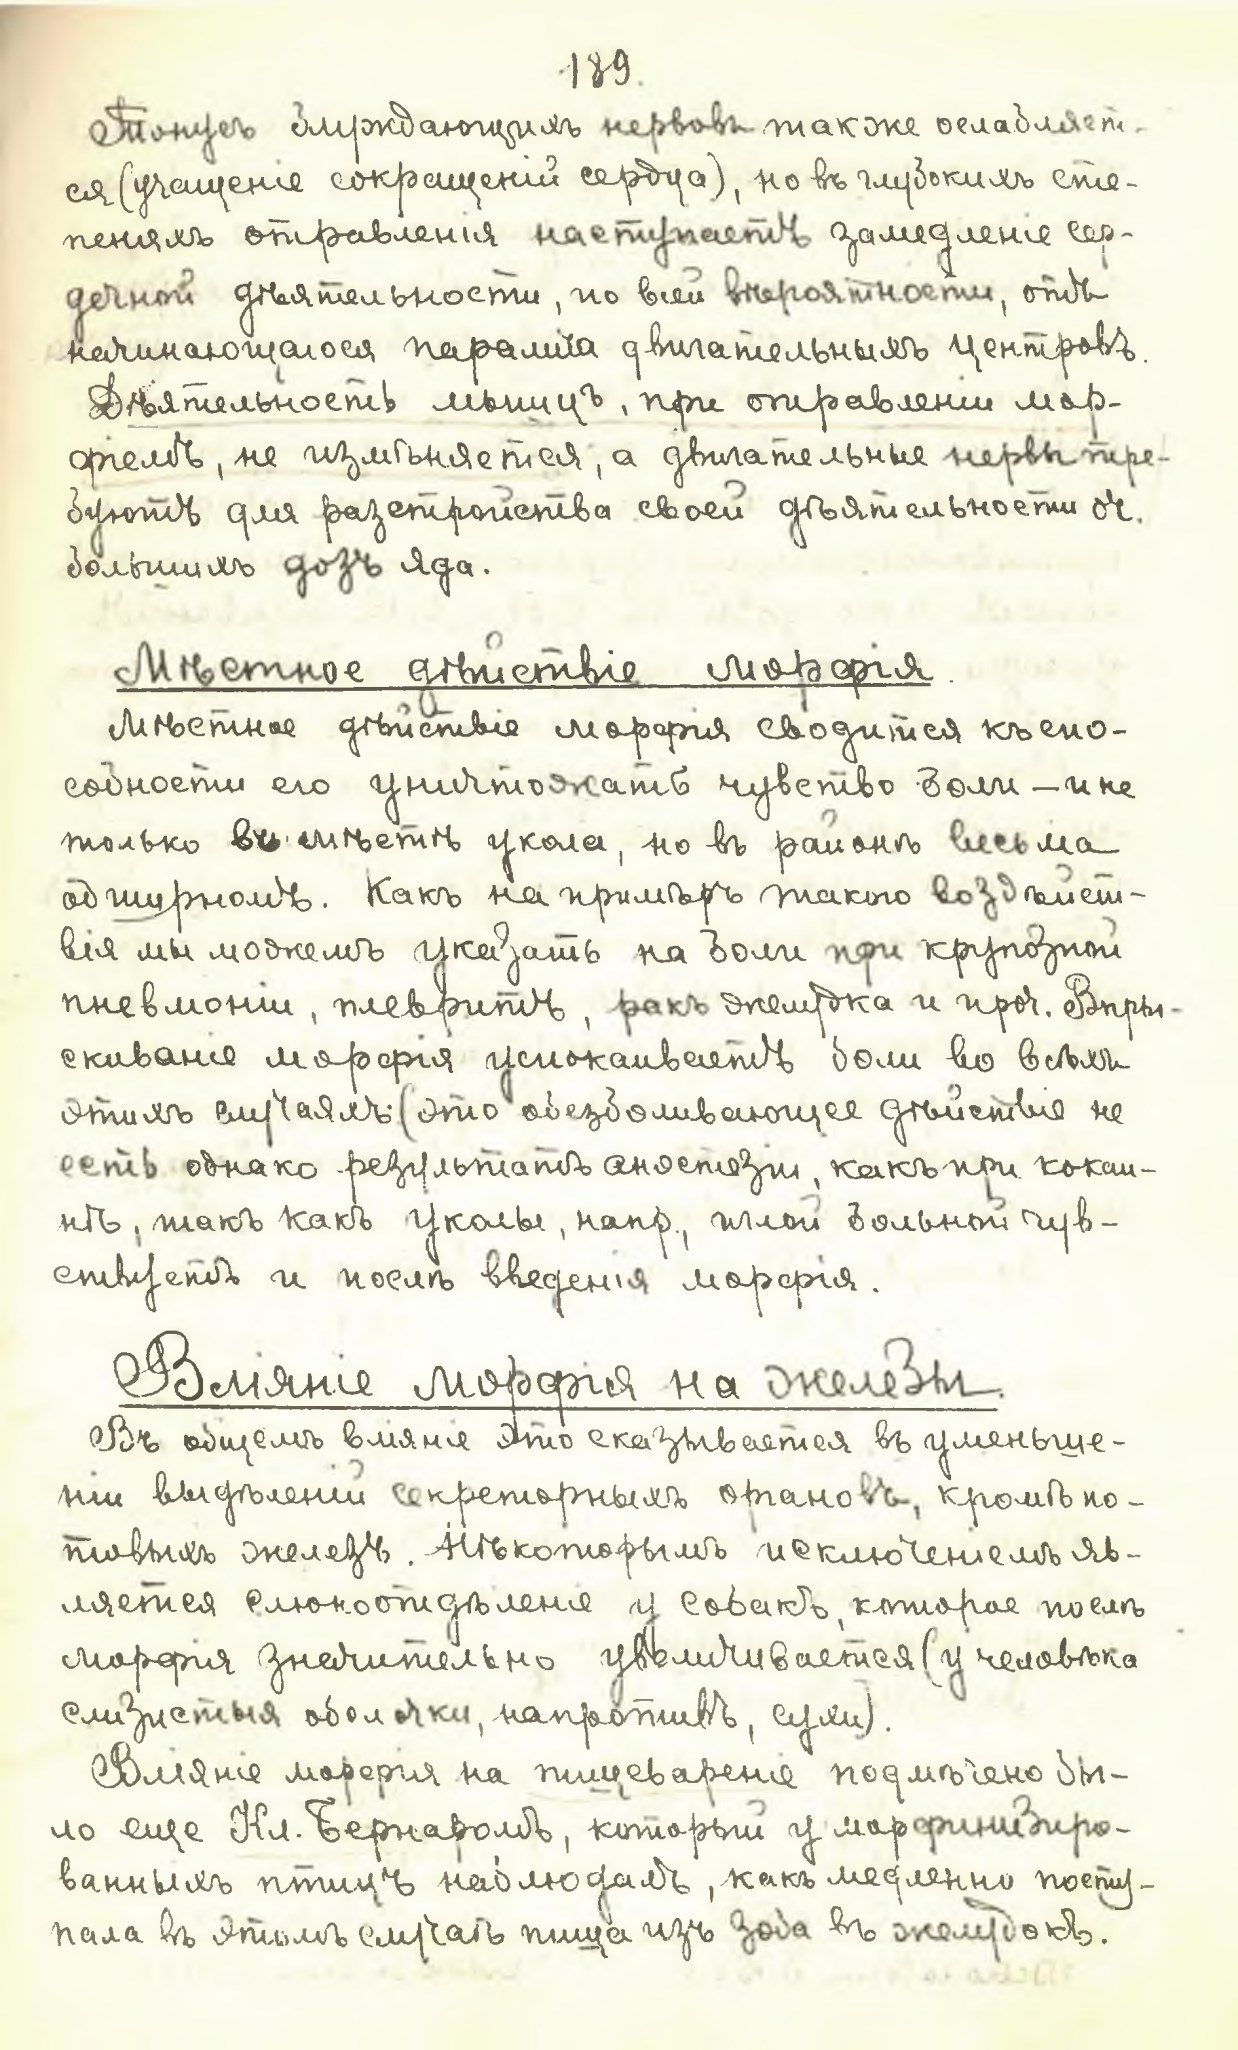 189.
Тонусъ блуждающихъ нервовъ также ослабляет-
ся (учащеніе сокращеній сердца), но въ глубокихъ сте-
пеняхъ отравленія наступаетъ замедленіе сер-
дечной дѣятельности, по всей вѣроятности, отъ
начинающагося паралича двигательныхъ центровъ.
Дѣятельность мышцъ, при отравленіи мор-
фіемъ, не измѣняется, а двигательные нервы тре-
буютъ для разстройства своей дѣятельности оч.
большихъ дозъ яда.
Мѣстное дѣйствіе морфія.
Мѣстное дѣйствіе морфія сводится къ спо-
собности его уничтожать чувство боли – и не
только въ мѣстѣ укола, но въ районѣ весьма
обширномъ. Какъ на примѣръ такого воздѣйст-
вія мы можемъ указать на боли при крупозной
пневмоніи, плевритѣ, ракѣ желудка и проч. Впры-
скиваніе морфія успокаиваетъ боли во всѣхъ
этихъ случаяхъ (это обезболивающее дѣйствіе не
есть однако результатъ анестезіи, какъ при кокаи-
нѣ, такъ какъ уколы, напр., иглой больной чув-
ствуетъ и послѣ введенія морфія.
Вліяніе морфія на железы.
Въ общемъ вліяніе это сказывается въ уменьше-
ніи выдѣленій секреторныхъ органовъ, кромѣ по-
товыхъ железъ. Нѣкоторымъ исключеніемъ яв-
ляется слюноотдѣленіе у собакъ, которое послѣ
морфія значительно увеличивается (у человѣка
слизистыя оболочки, напротивъ, сухи).
Вліяніе морфія на пищевареніе подмѣчено бы-
ло еще Кл. Бернаромъ, который у морфинизиро-
ванныхъ птицъ наблюдалъ, какъ медленно посту-
пала въ этомъ случаѣ пища изъ зоба въ желудокъ.